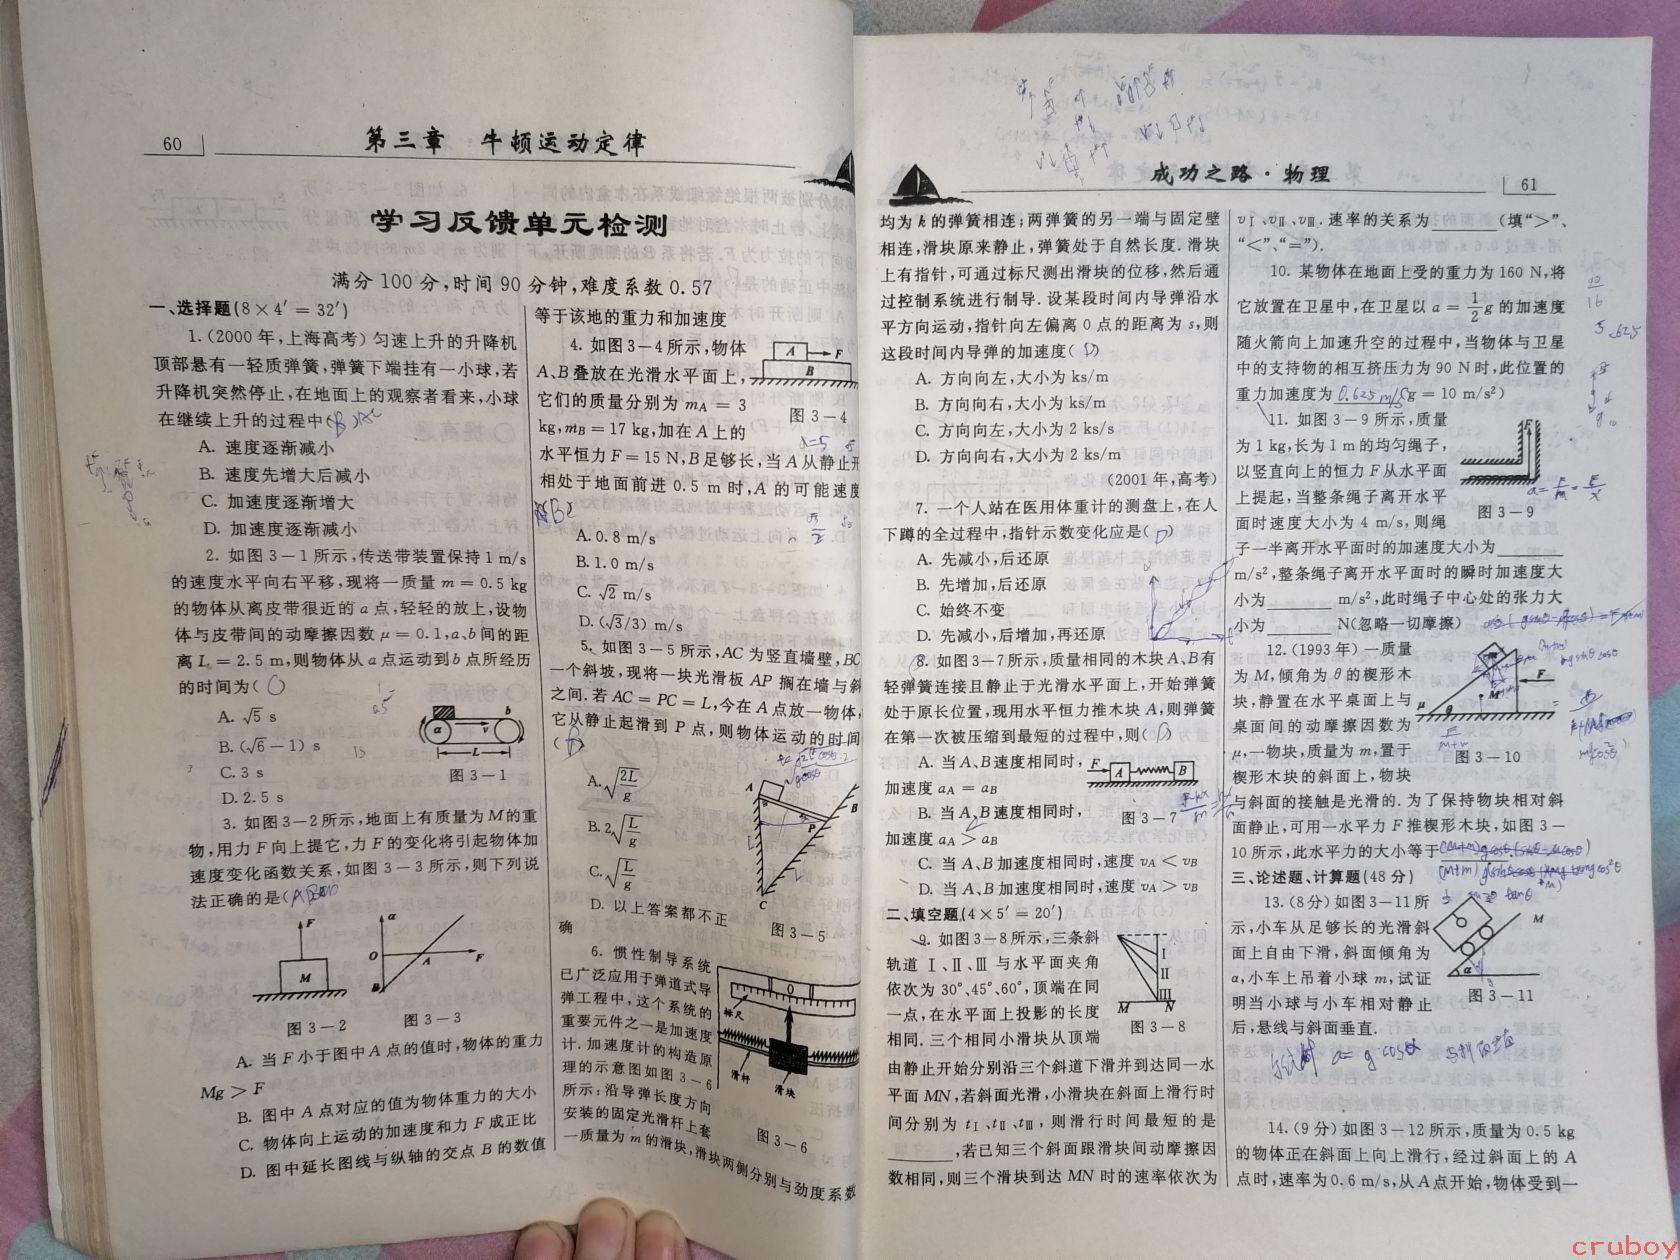 60
第三章 牛顿运动定律
学习反馈单元检测
满分100分,时间90分钟,难度系数0.57
一、选择题(8×4′=32′)
1.(2000年,上海高考)匀速上升的升降机
顶部悬有一轻质弹簧,弹簧下端挂有一小球,若
升降机突然停止,在地面上的观察者看来,小球
在继续上升的过程中( )
A. 速度逐渐减小
B. 速度先增大后减小
C. 加速度逐渐增大
D. 加速度逐渐减小
2. 如图3-1所示,传送带装置保持1 m/s
的速度水平向右平移,现将一质量m=0.5 kg
的物体从离皮带很近的a点,轻轻的放上,设物
体与皮带间的动摩擦因数μ=0.1,a、b间的距
离L=2.5 m,则物体从a点运动到b点所经历
的时间为( )
A. √5 s
B. (√6-1) s
C. 3 s
D. 2.5 s
a
v
b
L
图3-1
3. 如图3-2所示,地面上有质量为M的重
物,用力F向上提它,力F的变化将引起物体加
速度变化函数关系,如图3-3所示,则下列说
法正确的是( )
F
M
图3-2
a
O
A
F
B
图3-3
A. 当F小于图中A点的值时,物体的重力
Mg>F
B. 图中A点对应的值为物体重力的大小
C. 物体向上运动的加速度和力F成正比
D. 图中延长图线与纵轴的交点B的数值
等于该地的重力和加速度
4. 如图3-4所示,物体
A、B叠放在光滑水平面上,
它们的质量分别为mA=3
kg,mB=17 kg,加在A上的
水平恒力F=15 N,B足够长,当A从静止开
相处于地面前进0.5 m时,A的可能速度
A
F
B
图3-4
A. 0.8 m/s
B. 1.0 m/s
C. √2 m/s
D. (√3/3) m/s
5. 如图3-5所示,AC为竖直墙壁,BC
一个斜坡,现将一块光滑板AP搁在墙与斜
之间.若AC=PC=L,今在A点放一物体,
它从静止起滑到P点,则物体运动的时间
( )
A. √(2L/g)
B. 2√(L/g)
C. √(L/g)
D. 以上答案都不正
确
A
B
P
C
图3-5
6. 惯性制导系统
已广泛应用于弹道式导
弹工程中,这个系统的
重要元件之一是加速度
计.加速度计的构造原
理的示意图如图3-6
所示:沿导弹长度方向
安装的固定光滑杆上套
一质量为m的滑块,滑块两侧分别与劲度系数
0
标尺
滑杆
滑块
图3-6
成功之路·物理
61
均为k的弹簧相连;两弹簧的另一端与固定壁
相连,滑块原来静止,弹簧处于自然长度.滑块
上有指针,可通过标尺测出滑块的位移,然后通
过控制系统进行制导.设某段时间内导弹沿水
平方向运动,指针向左偏离0点的距离为s,则
这段时间内导弹的加速度(D)
A. 方向向左,大小为ks/m
B. 方向向右,大小为ks/m
C. 方向向左,大小为2 ks/s
D. 方向向右,大小为2 ks/m
(2001年,高考)
7. 一个人站在医用体重计的测盘上,在人
下蹲的全过程中,指针示数变化应是(D)
A. 先减小,后还原
B. 先增加,后还原
C. 始终不变
D. 先减小,后增加,再还原
8. 如图3-7所示,质量相同的木块A、B有
轻弹簧连接且静止于光滑水平面上,开始弹簧
处于原长位置,现用水平恒力推木块A,则弹簧
在第一次被压缩到最短的过程中,则( )
A. 当A、B速度相同时,
加速度aA=aB
B. 当A、B速度相同时,
加速度aA>aB
C. 当A、B加速度相同时,速度vA<vB
D. 当A、B加速度相同时,速度vA>vB
F
A
B
图3-7
二、填空题(4×5′=20′)
9. 如图3-8所示,三条斜
轨道Ⅰ、Ⅱ、Ⅲ与水平面夹角
依次为30°、45°、60°,顶端在同
一点,在水平面上投影的长度
相同.三个相同小滑块从顶端
由静止开始分别沿三个斜道下滑并到达同一水
平面MN,若斜面光滑,小滑块在斜面上滑行时
间分别为tⅠ、tⅡ、tⅢ,则滑行时间最短的是
________,若已知三个斜面跟滑块间动摩擦因
数相同,则三个滑块到达MN时的速率依次为
Ⅰ
Ⅱ
Ⅲ
M
N
图3-8
vⅠ、vⅡ、vⅢ.速率的关系为________(填“>”、
“<”、“=”).
10. 某物体在地面上受的重力为160 N,将
它放置在卫星中,在卫星以a=1/2 g的加速度
随火箭向上加速升空的过程中,当物体与卫星
中的支持物的相互挤压力为90 N时,此位置的
重力加速度为0.625 m/s²(g=10 m/s²)
11. 如图3-9所示,质量
为1 kg,长为1 m的均匀绳子,
以竖直向上的恒力F从水平面
上提起,当整条绳子离开水平
面时速度大小为4 m/s,则绳
子一半离开水平面时的加速度大小为________
m/s²,整条绳子离开水平面时的瞬时加速度大
小为________m/s²,此时绳子中心处的张力大
小为________N(忽略一切摩擦)
F
图3-9
12.(1993年)一质量
为M,倾角为θ的楔形木
块,静置在水平桌面上与
桌面间的动摩擦因数为
μ,一物块,质量为m,置于
楔形木块的斜面上,物块
与斜面的接触是光滑的.为了保持物块相对斜
面静止,可用一水平力F推楔形木块,如图3-
10所示,此水平力的大小等于
F
M
μ
θ
图3-10
三、论述题、计算题(48分)
13.(8分)如图3-11所
示,小车从足够长的光滑斜
面上自由下滑,斜面倾角为
α,小车上吊着小球m,试证
明当小球与小车相对静止
后,悬线与斜面垂直.
M
α
图3-11
14.(9分)如图3-12所示,质量为0.5 kg
的物体正在斜面上向上滑行,经过斜面上的A
点时,速率为0.6 m/s,从A点开始,物体受到一
cruboy